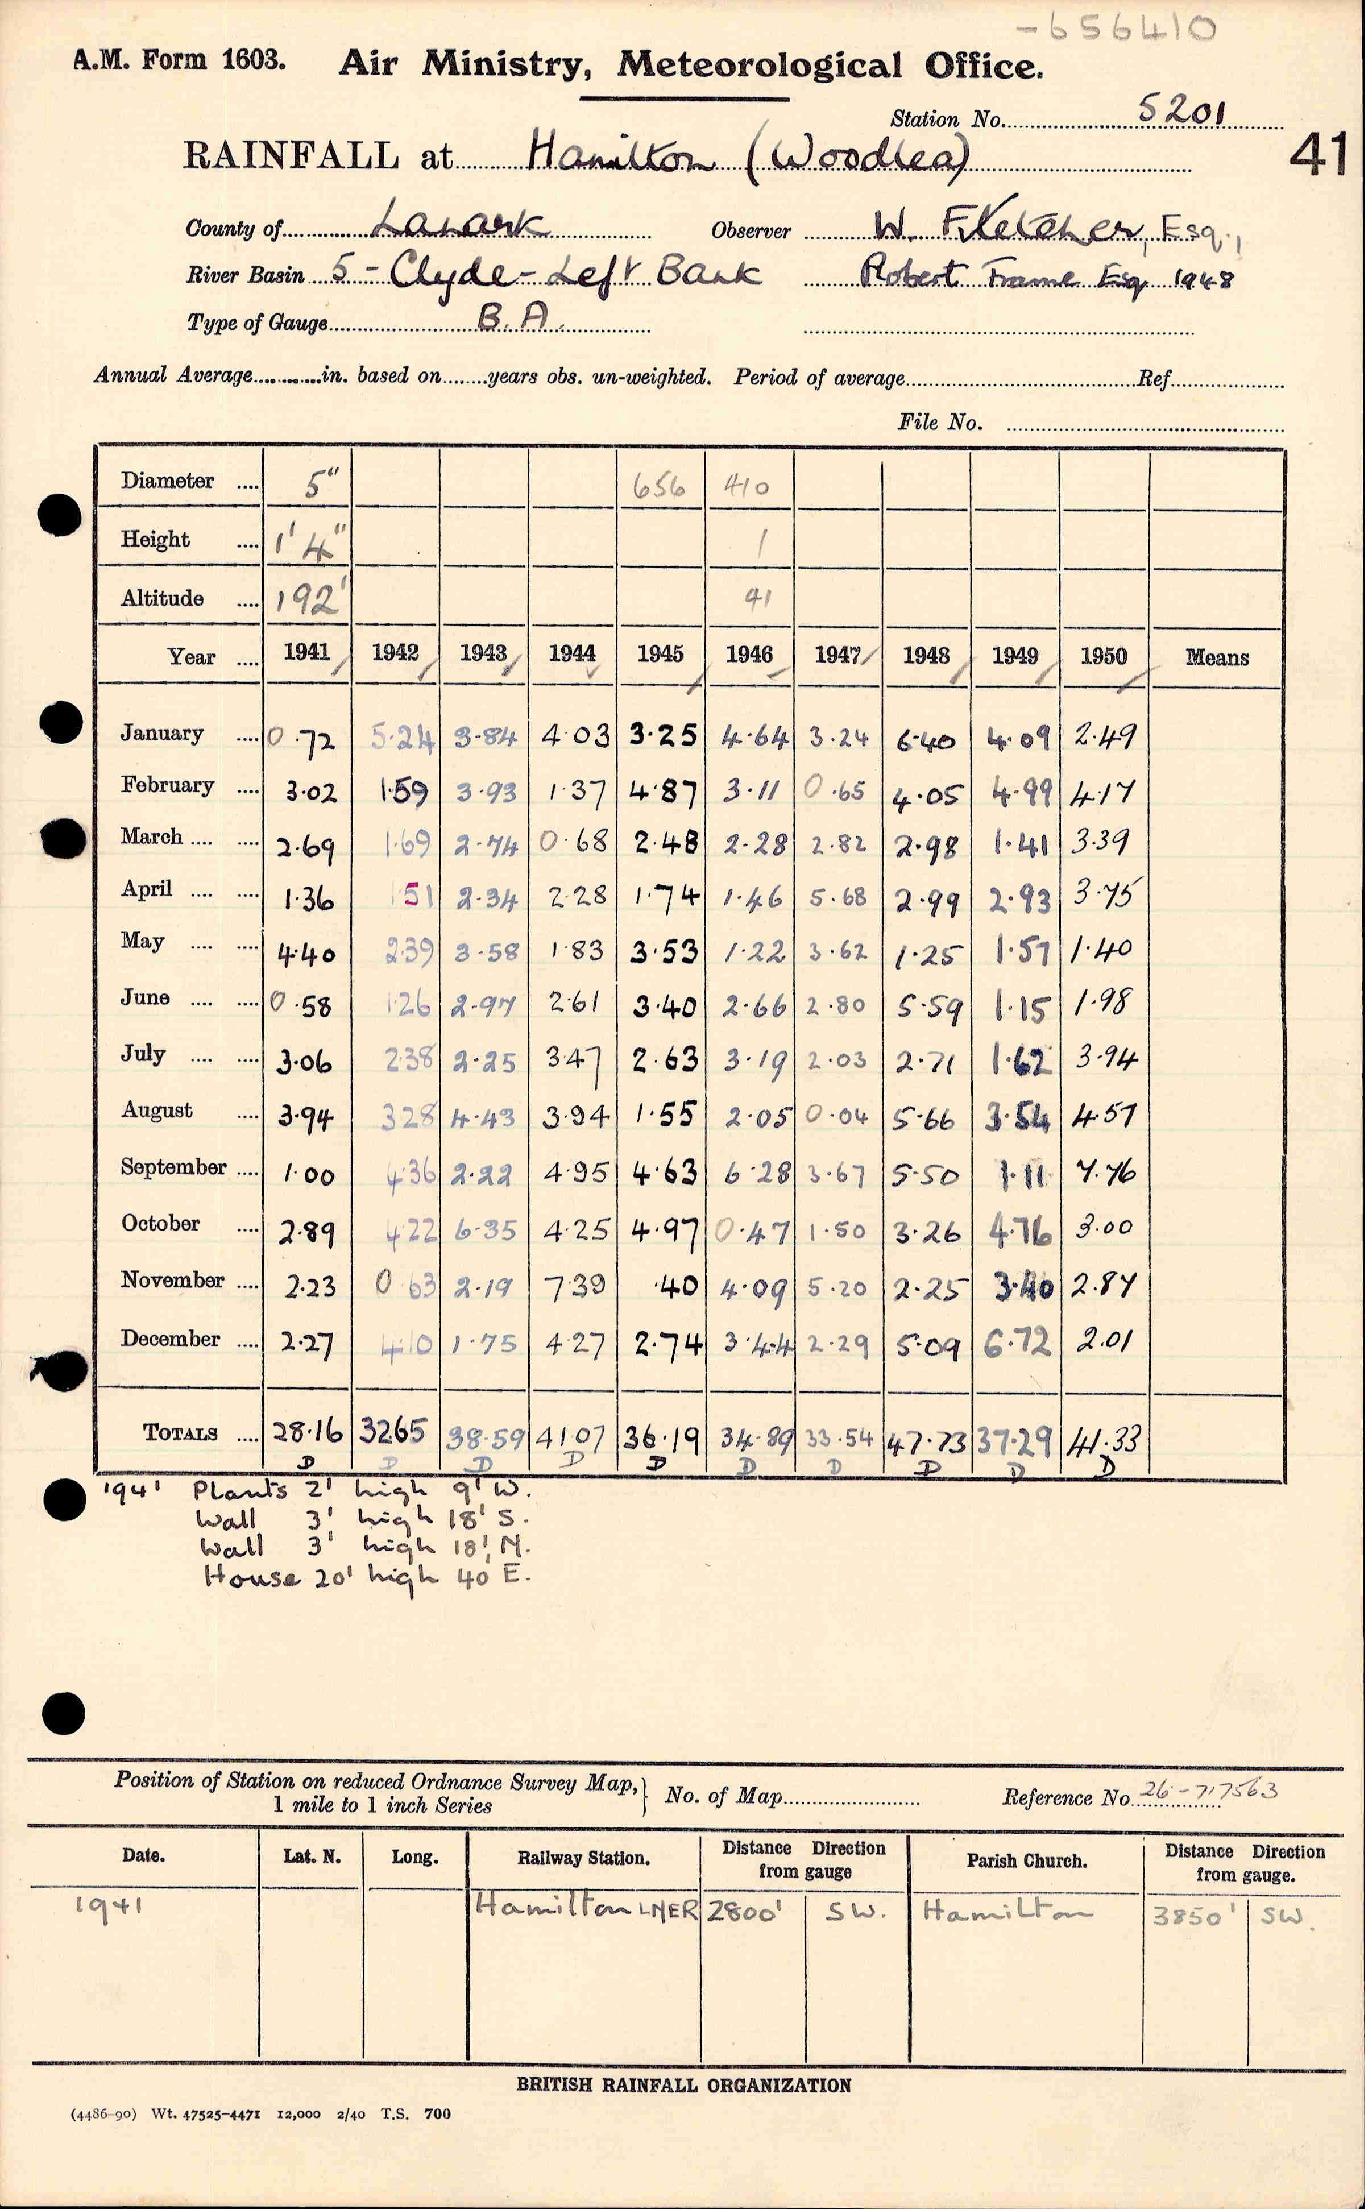 -656410
A.M. Form 1603. Air Ministry, Meteorological Office.
Station No. 5201
RAINFALL at Hamilton (Woodlea) 41
County of Lanark Observer W. Fletcher, Esq.,
River Basin 5 - Clyde - Left Bank Robert Frame Esq 1948
Type of Gauge B.A.
Annual Average............in. based on........years obs. un-weighted. Period of average..........Ref..........
File No. ..........
Diameter .... 5" 656 410
Height .... 1' 4" 1
Altitude .... 192' 41
Year .... 1941 1942 1943 1944 1945 1946 1947 1948 1949 1950 Means
January .... 0.72 5.24 3.84 4.03 3.25 4.64 3.24 6.40 4.09 2.49
February .... 3.02 1.59 3.93 1.37 4.87 3.11 0.65 4.05 4.99 4.17
March .... .... 2.69 1.69 2.74 0.68 2.48 2.28 2.82 2.98 1.41 3.39
April .... .... 1.36 1 51 2.34 2.28 1.74 1.46 5.68 2.99 2.93 3.75
May .... .... 4.40 2.39 3.58 1.83 3.53 1.22 3.62 1.25 1.57 1.40
June .... .... 0.58 1.26 2.97 2.61 3.40 2.66 2.80 5.59 1.15 1.98
July .... .... 3.06 2.38 2.25 3.47 2.63 3.19 2.03 2.71 1.62 3.94
August .... 3.94 3.28 4.43 3.94 1.55 2.05 0.04 5.66 3.54 4.57
September .... 1.00 4.36 2.22 4.95 4.63 6.28 3.67 5.50 1.11 7.76
October .... 2.89 4.22 6.35 4.25 4.97 0.47 1.50 3.26 4.76 3.00
November .... 2.23 0.63 2.19 7.39 .40 4.09 5.20 2.25 3.40 2.87
December .... 2.27 4.10 1.75 4.27 2.74 3.44 2.29 5.09 6.72 2.01
TOTALS .... 28.16 32.65 38.59 41.07 36.19 34.89 33.54 47.73 37.29 41.33
D D D D D D D D D D
1941 Plants 2' high 9' W.
Wall 3' high 18' S.
Wall 3' high 18' N.
House 20' high 40' E.
Position of Station on reduced Ordnance Survey Map, } No. of Map.......... Reference No. 26-717563
1 mile to 1 inch Series
Date. Lat. N. Long. Railway Station. Distance Direction from gauge Parish Church. Distance Direction from gauge.
1941 Hamilton LNER 2800' SW. Hamilton 3850' SW.
BRITISH RAINFALL ORGANIZATION
(4486-90) Wt. 47525-4471 12,000 2/40 T.S. 700